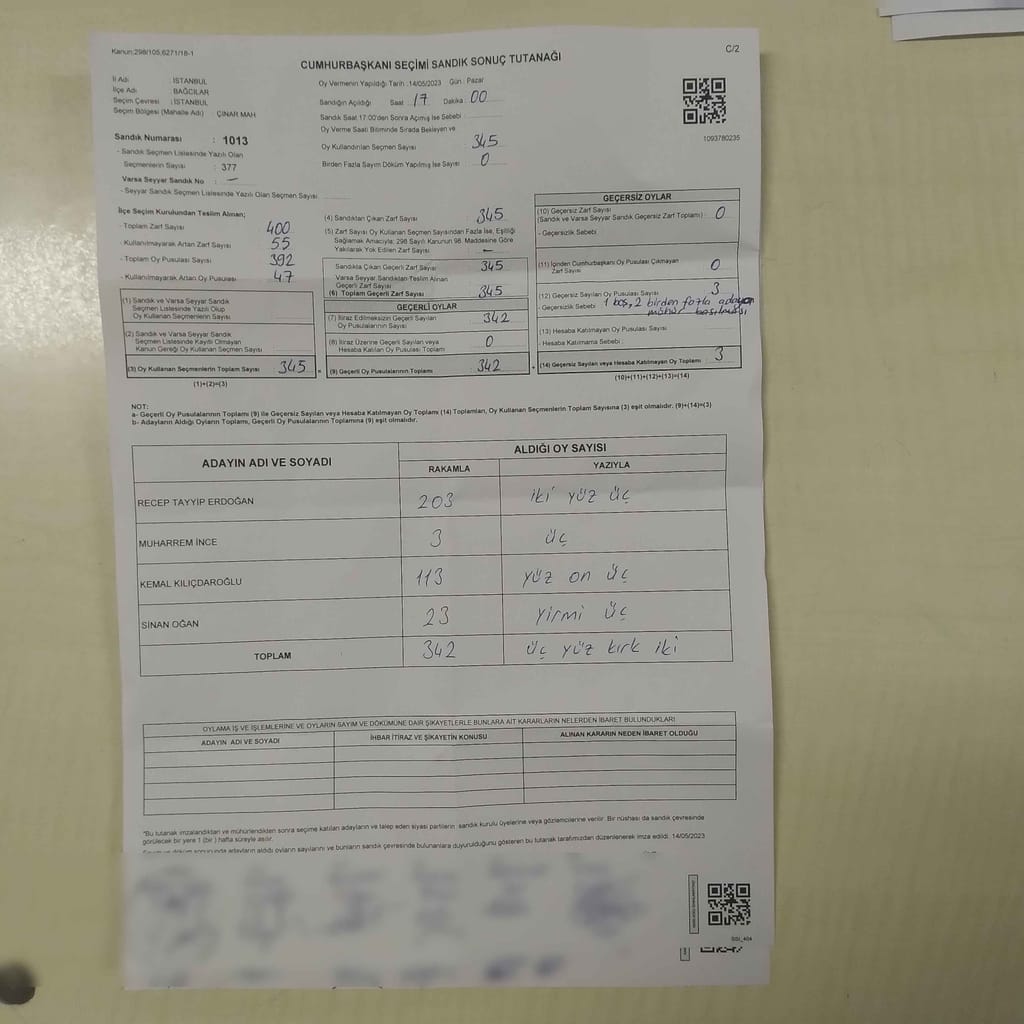 Kanun:298/105,6271/18-1
C/2
CUMHURBAŞKANI SEÇİMİ SANDIK SONUÇ TUTANAĞI
İl Adı : İSTANBUL
İlçe Adı : BAĞCILAR
Seçim Çevresi : İSTANBUL
Seçim Bölgesi (Mahalle Adı) ÇINAR MAH
Sandık Numarası : 1013
- Sandık Seçmen Listesinde Yazılı Olan
Seçmenlerin Sayısı : 377
Varsa Seyyar Sandık No : —
- Seyyar Sandık Seçmen Listesinde Yazılı Olan Seçmen Sayısı
Oy Vermenin Yapıldığı Tarih :14/05/2023 Gün : Pazar
Sandığın Açıldığı Saat 17 Dakika 00
Sandık Saat 17:00'den Sonra Açımış İse Sebebi
Oy Verme Saati Bitiminde Sırada Bekleyen ve
Oy Kullandırılan Seçmen Sayısı 345
Birden Fazla Sayım Döküm Yapılmış İse Sayısı 0
1093780235
İlçe Seçim Kurulundan Teslim Alınan;
- Toplam Zarf Sayısı 400
- Kullanılmayarak Artan Zarf Sayısı 55
- Toplam Oy Pusulası Sayısı 392
- Kullanılmayarak Artan Oy Pusulası 47
(1) Sandık ve Varsa Seyyar Sandık
Seçmen Listesinde Yazılı Olup
Oy Kullanan Seçmenlerin Sayısı
(2) Sandık ve Varsa Seyyar Sandık
Seçmen Listesinde Kaydı Olmayan
Kanun Gereği Oy Kullanan Seçmen Sayısı
(3) Oy Kullanan Seçmenlerin Toplam Sayısı 345
(1)+(2)=(3)
(4) Sandıktan Çıkan Zarf Sayısı 345
(5) Zarf Sayısı Oy Kullanan Seçmen Sayısından Fazla İse, Eşitliği
Sağlamak Amacıyla; 298 Sayılı Kanunun 98. Maddesine Göre
Yakılarak Yok Edilen Zarf Sayısı —
Sandıkta Çıkan Geçerli Zarf Sayısı 345
Varsa Seyyar Sandıktan Teslim Alınan
Geçerli Zarf Sayısı
(6) Toplam Geçerli Zarf Sayısı 345
GEÇERLİ OYLAR
(7) İtiraz Edilmeksizin Geçerli Sayılan
Oy Pusulalarının Sayısı 342
(8) İtiraz Üzerine Geçerli Sayılan veya
Hesaba Katılan Oy Pusulası Toplam 0
(9) Geçerli Oy Pusulalarının Toplamı 342
GEÇERSİZ OYLAR
(10) Geçersiz Zarf Sayısı
(Sandık ve Varsa Seyyar Sandık Geçersiz Zarf Toplamı) 0
- Geçersizlik Sebebi
(11) İçinden Cumhurbaşkanı Oy Pusulası Çıkmayan
Zarf Sayısı 0
(12) Geçersiz Sayılan Oy Pusulası Sayısı 3
- Geçersizlik Sebebi 1 boş, 2 birden fazla adaya
mühür basılması
(13) Hesaba Katılmayan Oy Pusulası Sayısı
- Hesaba Katılmama Sebebi
(14) Geçersiz Sayılan veya Hesaba Katılmayan Oy Toplamı 3
(10)+(11)+(12)+(13)=(14)
NOT:
a- Geçerli Oy Pusulalarının Toplamı (9) ile Geçersiz Sayılan veya Hesaba Katılmayan Oy Toplamı (14) Toplamları, Oy Kullanan Seçmenlerin Toplam Sayısına (3) eşit olmalıdır. (9)+(14)=(3)
b- Adayların Aldığı Oyların Toplamı, Geçerli Oy Pusulalarının Toplamına (9) eşit olmalıdır.
ADAYIN ADI VE SOYADI
ALDIĞI OY SAYISI
RAKAMLA YAZIYLA
RECEP TAYYİP ERDOĞAN 203 iki yüz üç
MUHARREM İNCE 3 üç
KEMAL KILIÇDAROĞLU 113 yüz on üç
SİNAN OĞAN 23 yirmi üç
TOPLAM 342 üç yüz kırk iki
OYLAMA İŞ VE İŞLEMLERİNE VE OYLARIN SAYIM VE DÖKÜMÜNE DAİR ŞİKAYETLERLE BUNLARA AİT KARARLARIN NELERDEN İBARET BULUNDUKLARI
ADAYIN ADI VE SOYADI İHBAR İTİRAZ VE ŞİKAYETİN KONUSU ALINAN KARARIN NEDEN İBARET OLDUĞU
*Bu tutanak imzalandıktan ve mühürlendikten sonra seçime katılan adayların ve talep eden siyasi partilerin sandık kurulu üyelerine veya gözlemcilerine verilir. Bir nüshası da sandık çevresinde
görülecek bir yere 1 (bir) hafta süreyle asılır.
sonucunda adayların aldığı oyların sayılarını ve bunların sandık çevresinde bulunanlara duyurulduğunu gösteren bu tutanak tarafımızdan düzenlenerek imza edildi. 14/05/2023